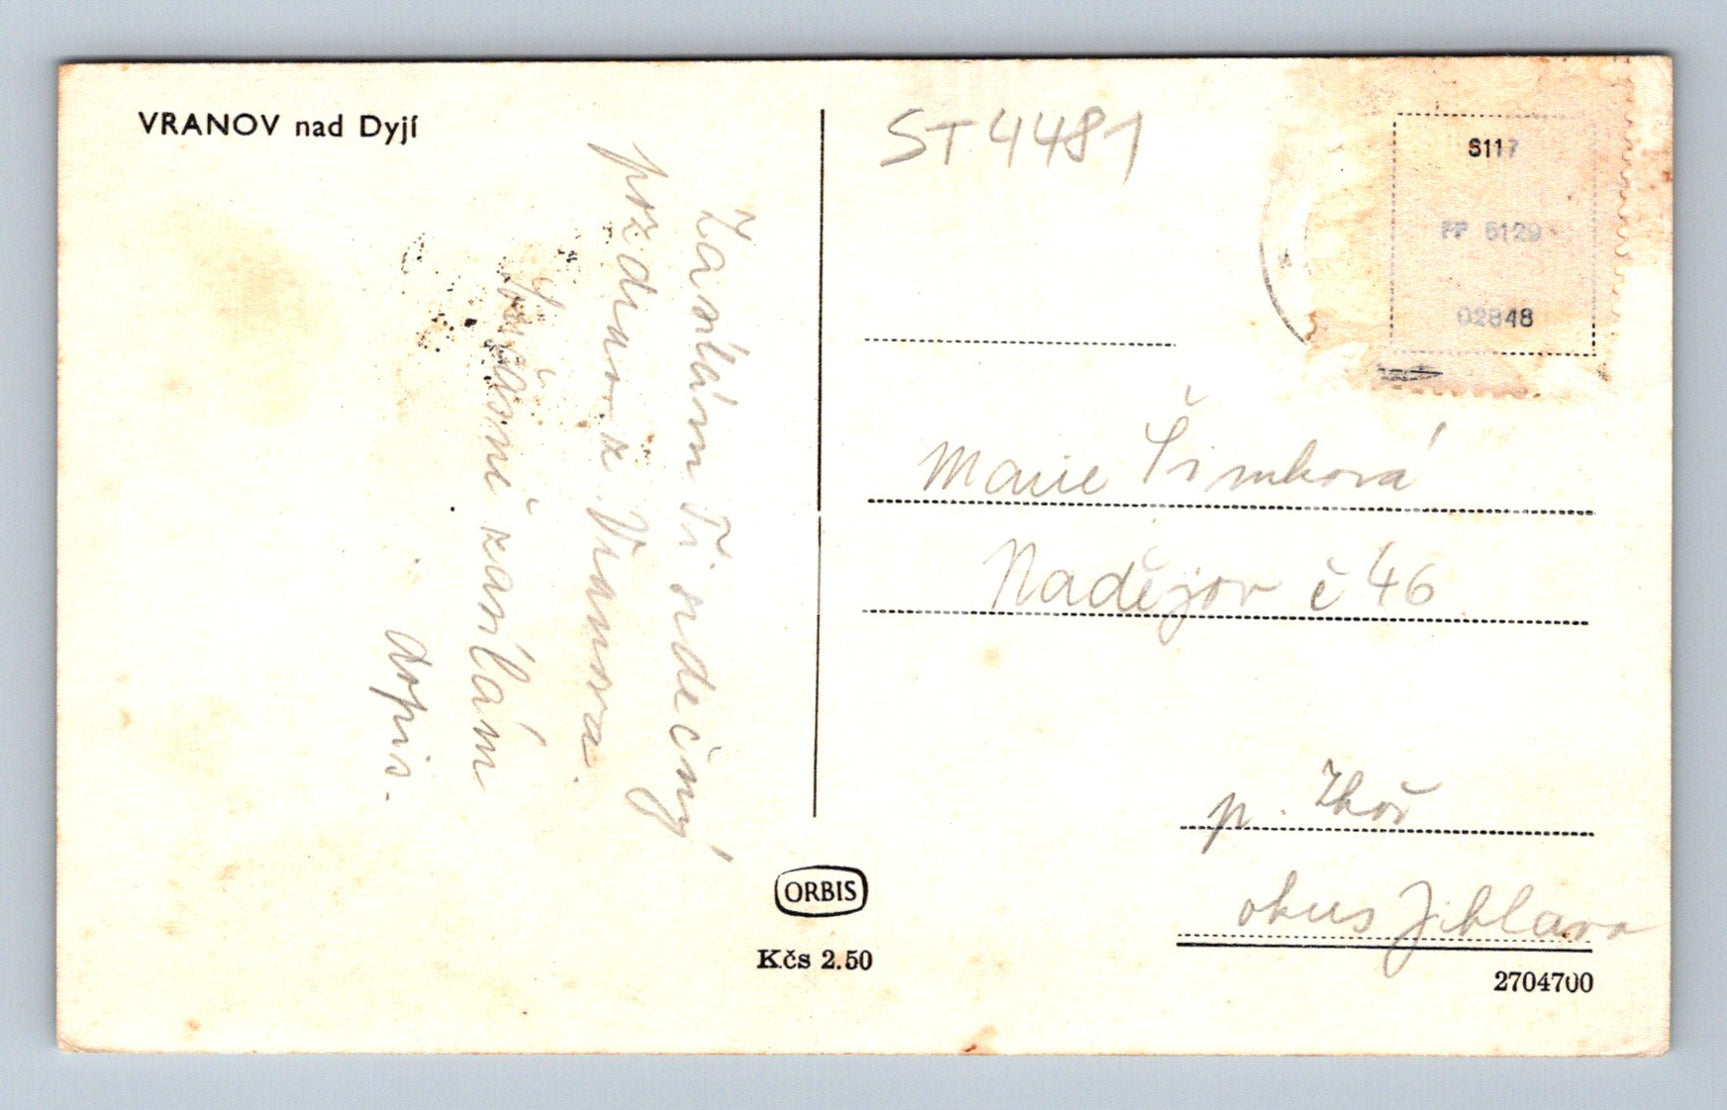 VRANOV nad Dyjí
Zasílám Ti srdečný
pozdrav z Vranova.
Současně zasílám
dopis.
ORBIS
Kčs 2.50
ST 4481
S117
PP 6129
02848
Marie Šimková
Nadějov č 46
p. Zhoř
okres Jihlava
2704700